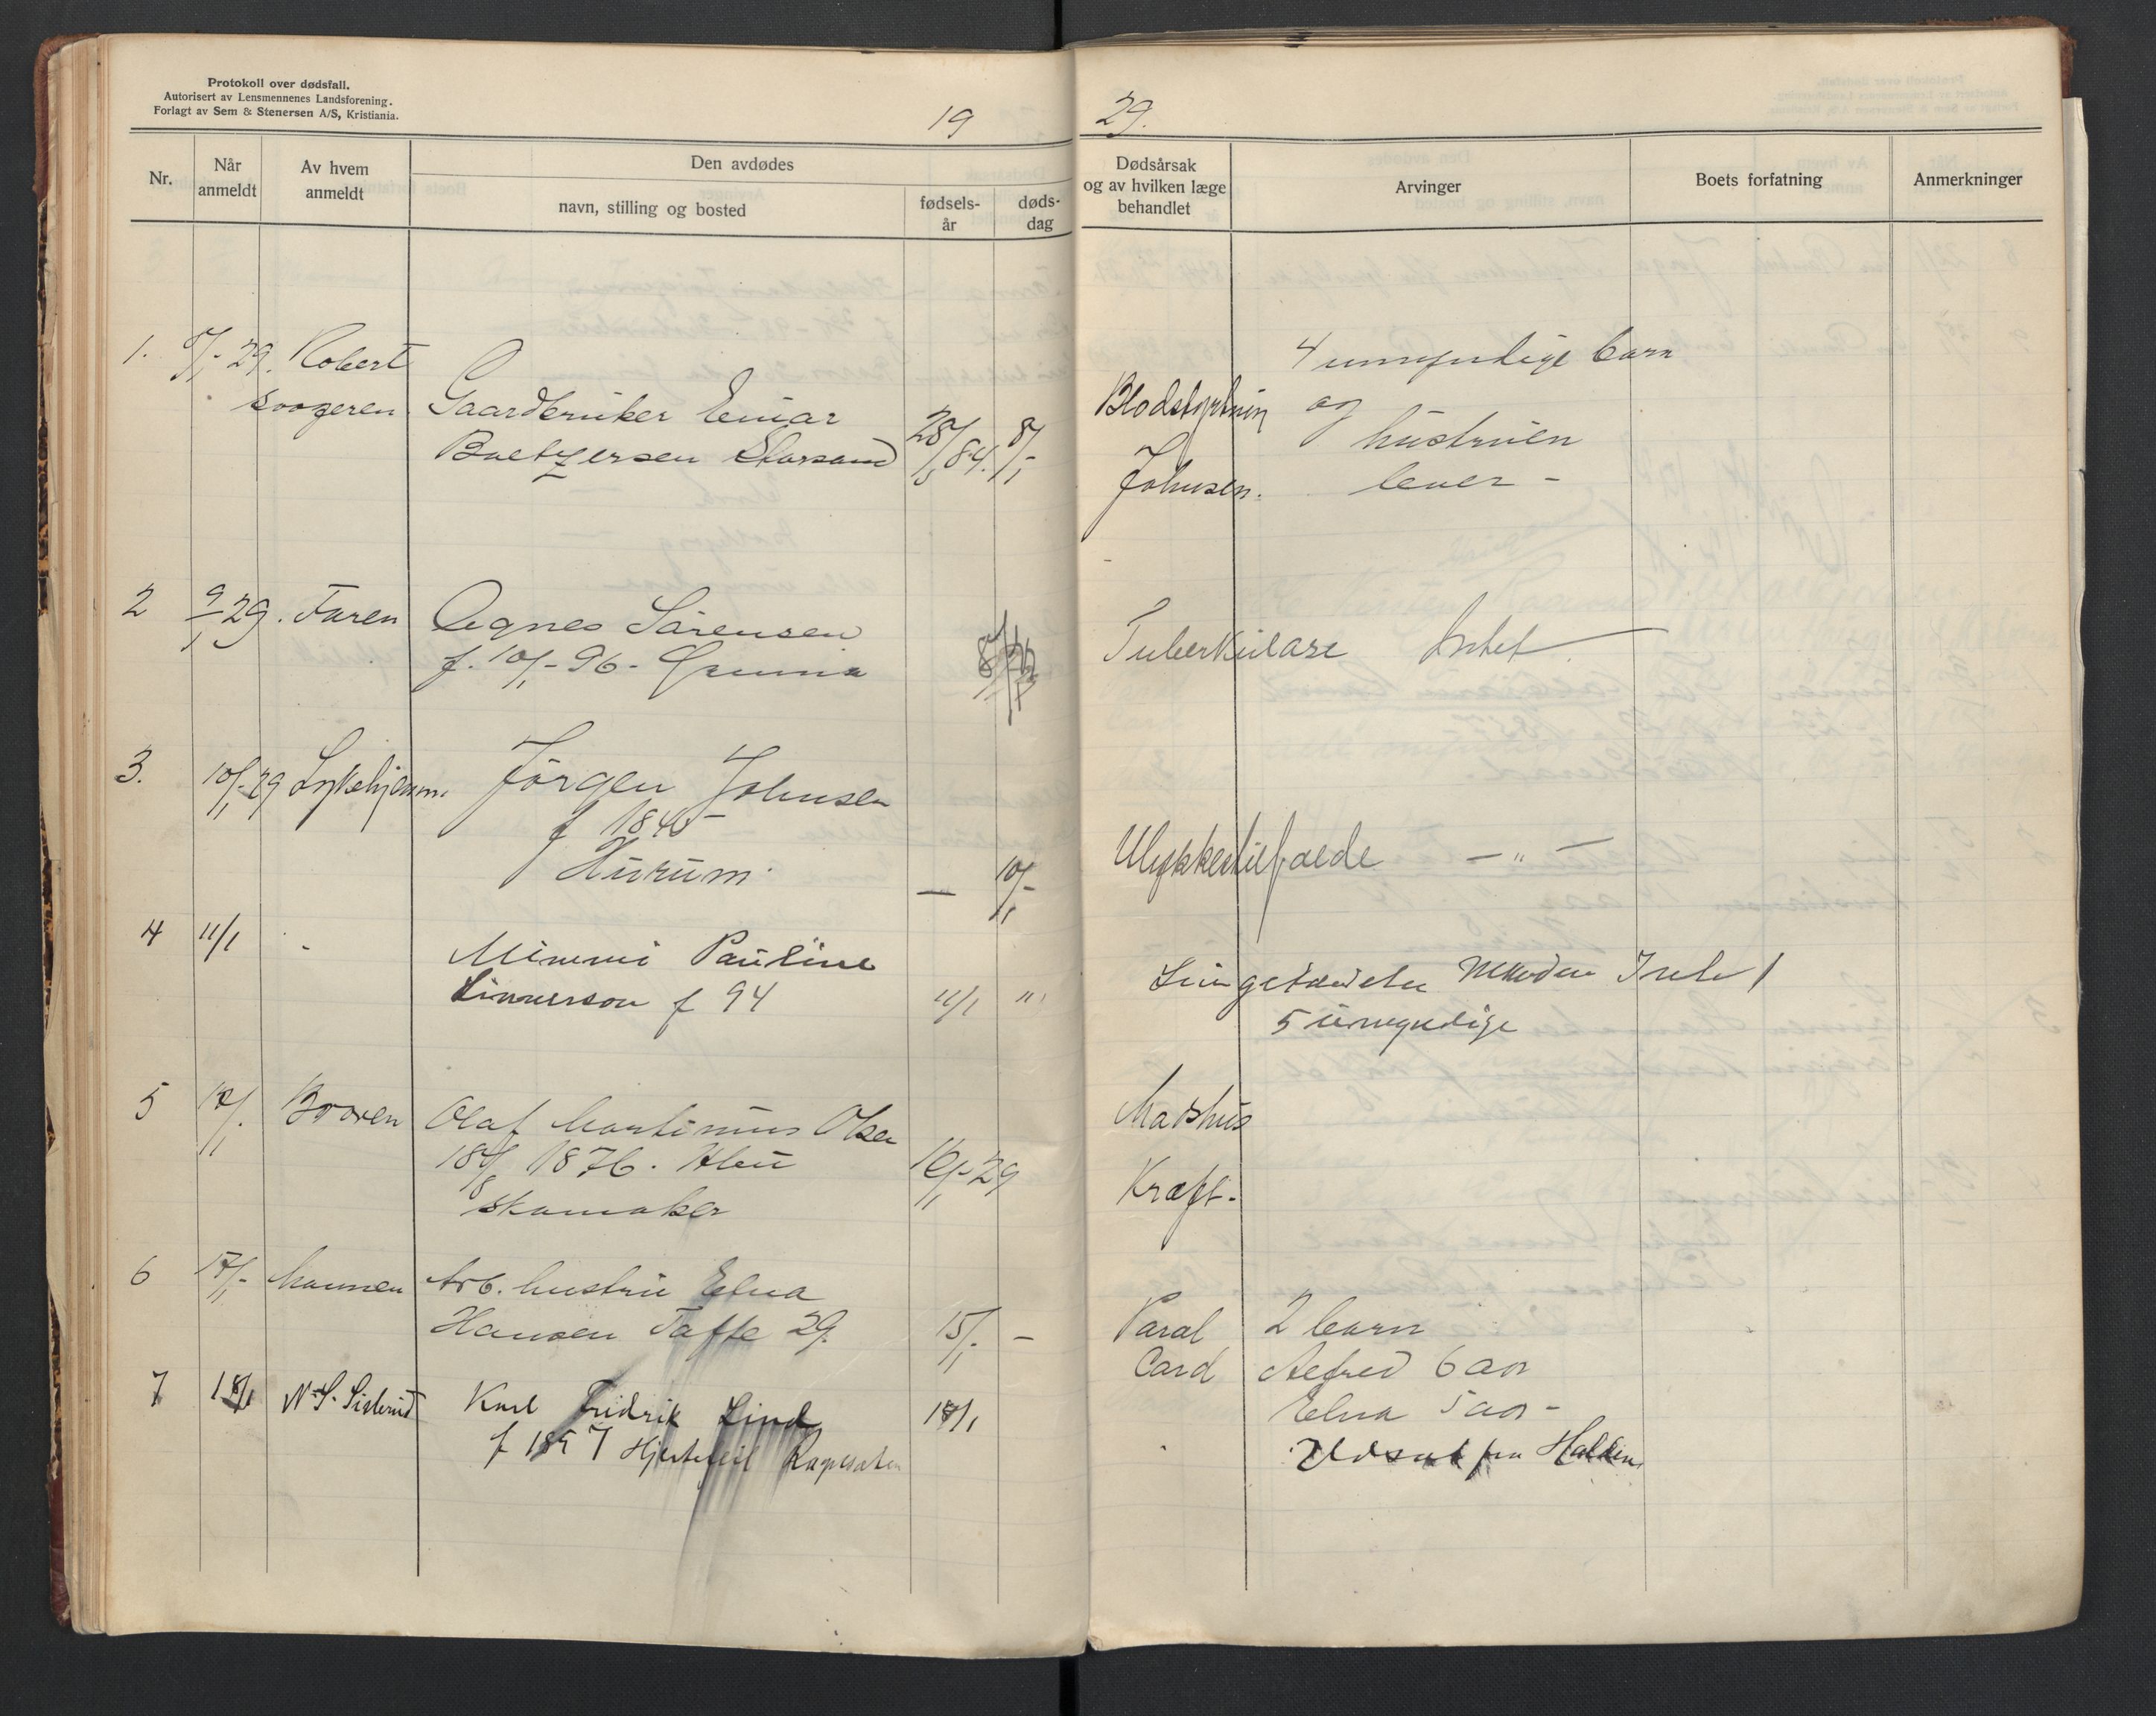 Protokoll over dødsfall.
Autorisert av Lensmennenes Landsforening.
Forlagt av Sem & Stenersen A/S, Kristiania.
19 29.
Nr.
Når anmeldt
Av hvem anmeldt
Den avdødes
navn, stilling og bosted
fødsels-år
døds-dag
Dødsårsak og av hvilken læge behandlet
Arvinger
Boets forfatning
Anmerkninger
1. 29. Robert
svogeren
Gaardbruker Einar
Storsand 84. 8/1 -
Blodstyrtning
Johnsen.
4 umyndige barn
og
hustruen
lever -
2 9/1 29. Faren Agnes Sørensen
f. 10/1 - 96 -
Tuberkulose Intet
3. 10/1 - 29 Sykehjem. Jørgen Johnsen
f 1845
Hurum. — 10/1 -
Ulykkestilfælde — " —
4 11/1 -
Pauline
f 94 11/1 "
Manden
5 umyndige
5 Broren Olaf Martinius Olsen
18/8 1876.
skomaker
16/1 - 29
Marshus
Kræft.
6 17/1 - Mannen Arb. hustru Elna
Hansen Tofte 29. 15/1 - —
Paral
Card
2 barn
Alfred 6 aar
Elna 5 aar -
7 18/1 N. S. Karl Fridrik Lind 18/1
f 1857 Hjertefeil
fra Halden